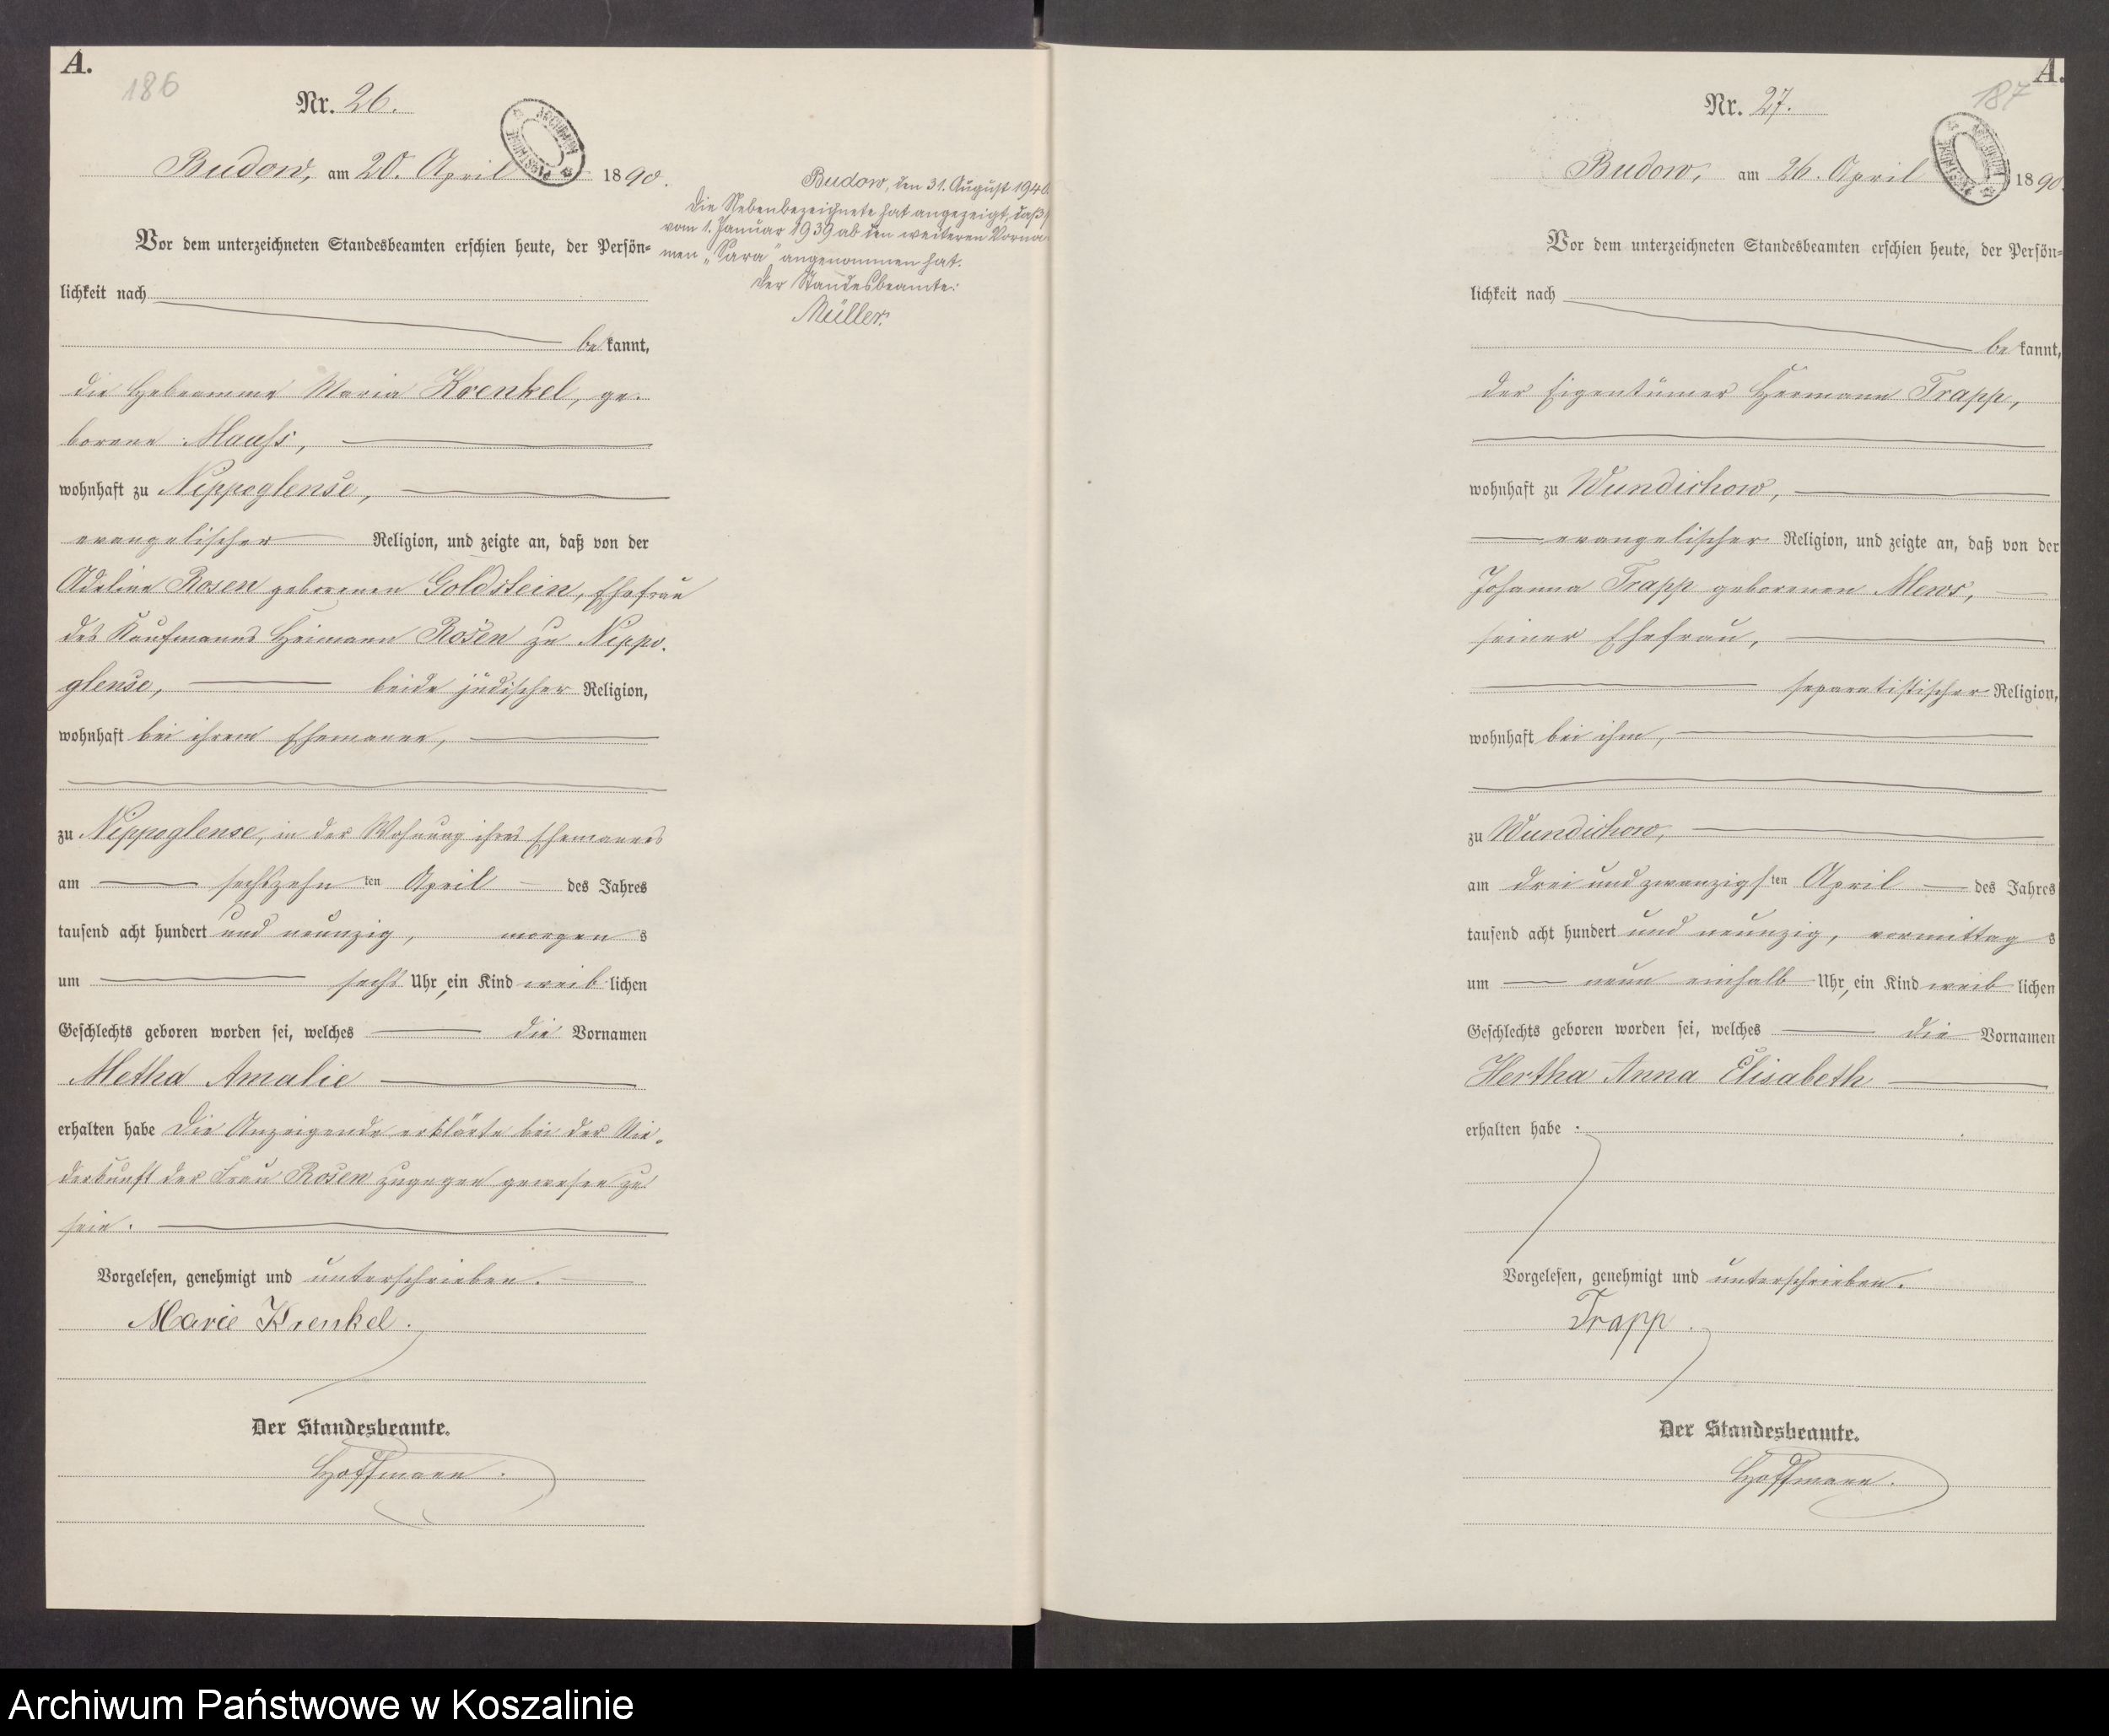 A.
186
Nr. 26.
Budow, am 20. April 1890.
Vor dem unterzeichneten Standesbeamten erschien heute, der Persön-
lichkeit nach
bekannt,
die Hebeamme Maria Krenkel, ge-
borene Maaß,
wohnhaft zu Nippoglense,
evangelischer Religion, und zeigte an, daß von der
Adeline Rosen geborenen Goldstein, Ehefrau
des Kaufmanns Heimann Rosen zu Nippo-
glense, beide jüdischer Religion,
wohnhaft bei ihrem Ehemanne,
zu Nippoglense, in der Wohnung ihres Ehemannes
am sechszehnten April des Jahres
tausend acht hundert und neunzig, morgens
um sechs Uhr, ein Kind weiblichen
Geschlechts geboren worden sei, welches die Vornamen
Metha Amalie
erhalten habe Die Anzeigende erklärte bei der Nie-
derkunft der Frau Rosen zugegen gewesen zu
sein.
Vorgelesen, genehmigt und unterschrieben.
Marie Krenkel.
Der Standesbeamte.
Hoffmann.
Budow, den 31. August 1940
Die Nebenbezeichnete hat angezeigt, daß
vom 1. Januar 1939 ab den weiteren Vorna-
men „Sara" angenommen hat.
Der Standesbeamte:
Müller.
A.
187
Nr. 27.
Budow, am 26. April 1890.
Vor dem unterzeichneten Standesbeamten erschien heute, der Persön-
lichkeit nach
bekannt,
der Eigentümer Hermann Trapp,
wohnhaft zu Wundichow,
evangelischer Religion, und zeigte an, daß von der
Johanna Trapp geborenen Mews,
seiner Ehefrau,
separatistischer Religion,
wohnhaft bei ihm,
zu Wundichow,
am drei und zwanzigsten April des Jahres
tausend acht hundert und neunzig, vormittags
um neun einhalb Uhr, ein Kind weiblichen
Geschlechts geboren worden sei, welches die Vornamen
Hertha Anna Elisabeth
erhalten habe.
Vorgelesen, genehmigt und unterschrieben.
Trapp.
Der Standesbeamte.
Hoffmann.
Archiwum Państwowe w Koszalinie